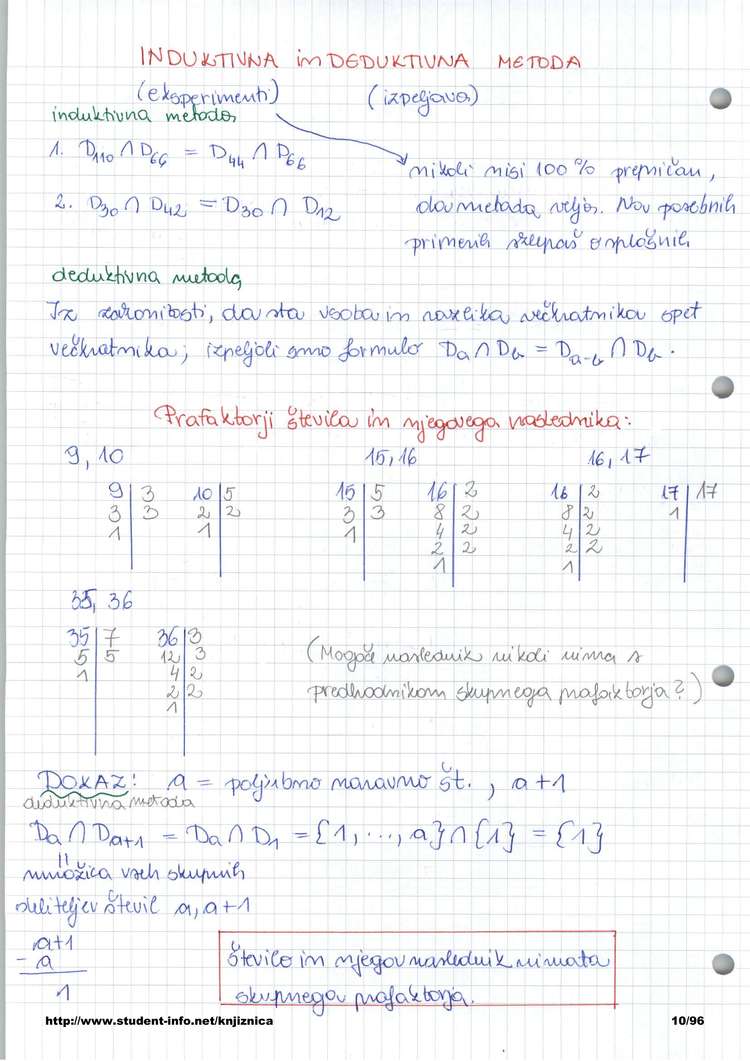 INDUKTIVNA in DEDUKTIVNA METODA
(eksperimenti) (izpeljava)
induktivna metoda
1. D110 ∩ D66 = D44 ∩ D66
nikoli nisi 100 % prepričan,
2. D30 ∩ D42 = D30 ∩ D12
da metoda velja. Na posebnih
primerih sklepaš o splošnih
deduktivna metoda
Iz zakonitosti, da sta vsota in razlika večkratnika spet
večkratnika; izpeljali smo formulo Da ∩ Db = Da-b ∩ Db.
Prafaktorji števila in njegovega naslednika:
9, 10 15, 16 16, 17
9 | 3 10 | 5 15 | 5 16 | 2 16 | 2 17 | 17
3 | 3 2 | 2 3 | 3 8 | 2 8 | 2 1 |
1 | 1 | 1 | 4 | 2 4 | 2
2 | 2 2 | 2
1 | 1 |
35, 36
35 | 7 36 | 3
5 | 5 12 | 3
1 | 4 | 2
2 | 2
1 |
(Mogoče naslednik nikoli nima s
predhodnikom skupnega prafaktorja?)
DOKAZ: a = poljubno naravno št., a+1
deduktivna metoda
Da ∩ Da+1 = Da ∩ D1 = {1, ..., a} ∩ {1} = {1}
||
množica vseh skupnih
deliteljev števil a, a+1
a+1
- a
1
Število in njegov naslednik nimata
skupnega prafaktorja.
http://www.student-info.net/knjiznica 10/96